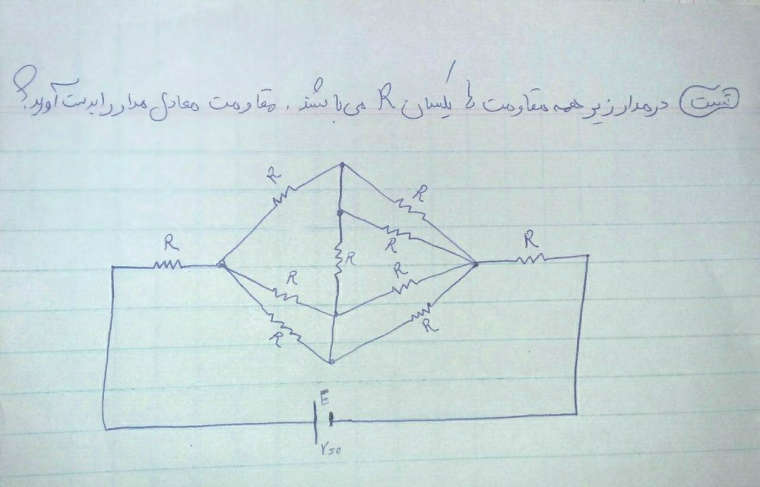 تست در مدار زیر همه مقاومت ها یکسان R می باشند. مقاومت معادل مدار را بدست آورید؟
R
R
R
R
R
R
R
R
R
R
E
r=0